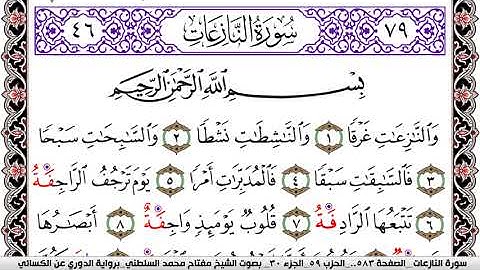 ٧٩ سُورَةُ النَّازِعَاتِ ٤٦
بِسْمِ اللَّهِ الرَّحْمَٰنِ الرَّحِيمِ
وَالنَّازِعَاتِ غَرْقًا ١ وَالنَّاشِطَاتِ نَشْطًا ٢ وَالسَّابِحَاتِ سَبْحًا
٣ فَالسَّابِقَاتِ سَبْقًا ٤ فَالْمُدَبِّرَاتِ أَمْرًا ٥ يَوْمَ تَرْجُفُ الرَّاجِفَةُ
٦ تَتْبَعُهَا الرَّادِفَةُ ٧ قُلُوبٌ يَوْمَئِذٍ وَاجِفَةٌ ٨ أَبْصَارُهَا
سورة النازعات_ الصفحة ٥٨٣_ الحزب ٥٩_الجزء ٣٠_ بصوت الشيخ مفتاح محمد السلطني_برواية الدوري عن الكسائي